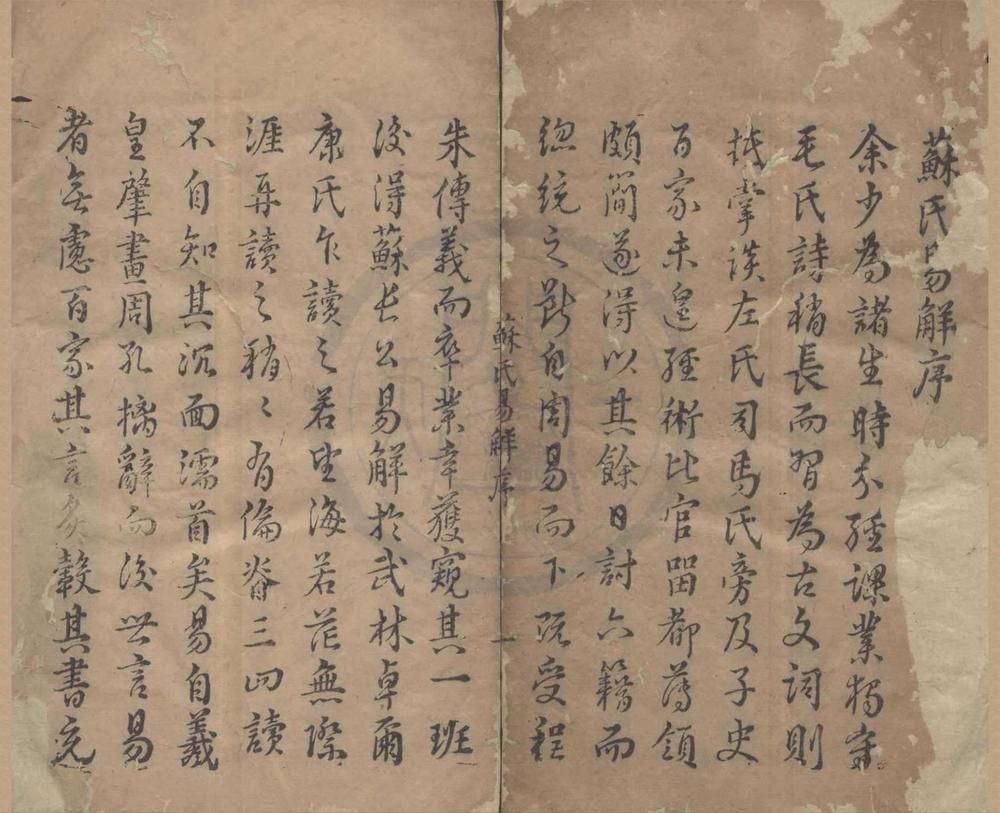 蘇氏易解序
余少為諸生時分經課業獨守
毛氏詩稍長而習為古文詞則
抵掌談左氏司馬氏旁及子史
百家未遑經術比官留都簿領
頗簡遂得以其餘日討六籍而
總統之斷自周易而下既受程
蘇氏易解序 一
朱傳義而卒業幸獲窺其一班
後得蘇長公易解於武林卓爾
康氏乍讀之若望海若茫無際
涯再讀之稍〻有倫脊三四讀
不自知其沉面濡首矣易自羲
皇肇畫周孔摛辭而後世言易
者無慮百家其言炙轂其書充